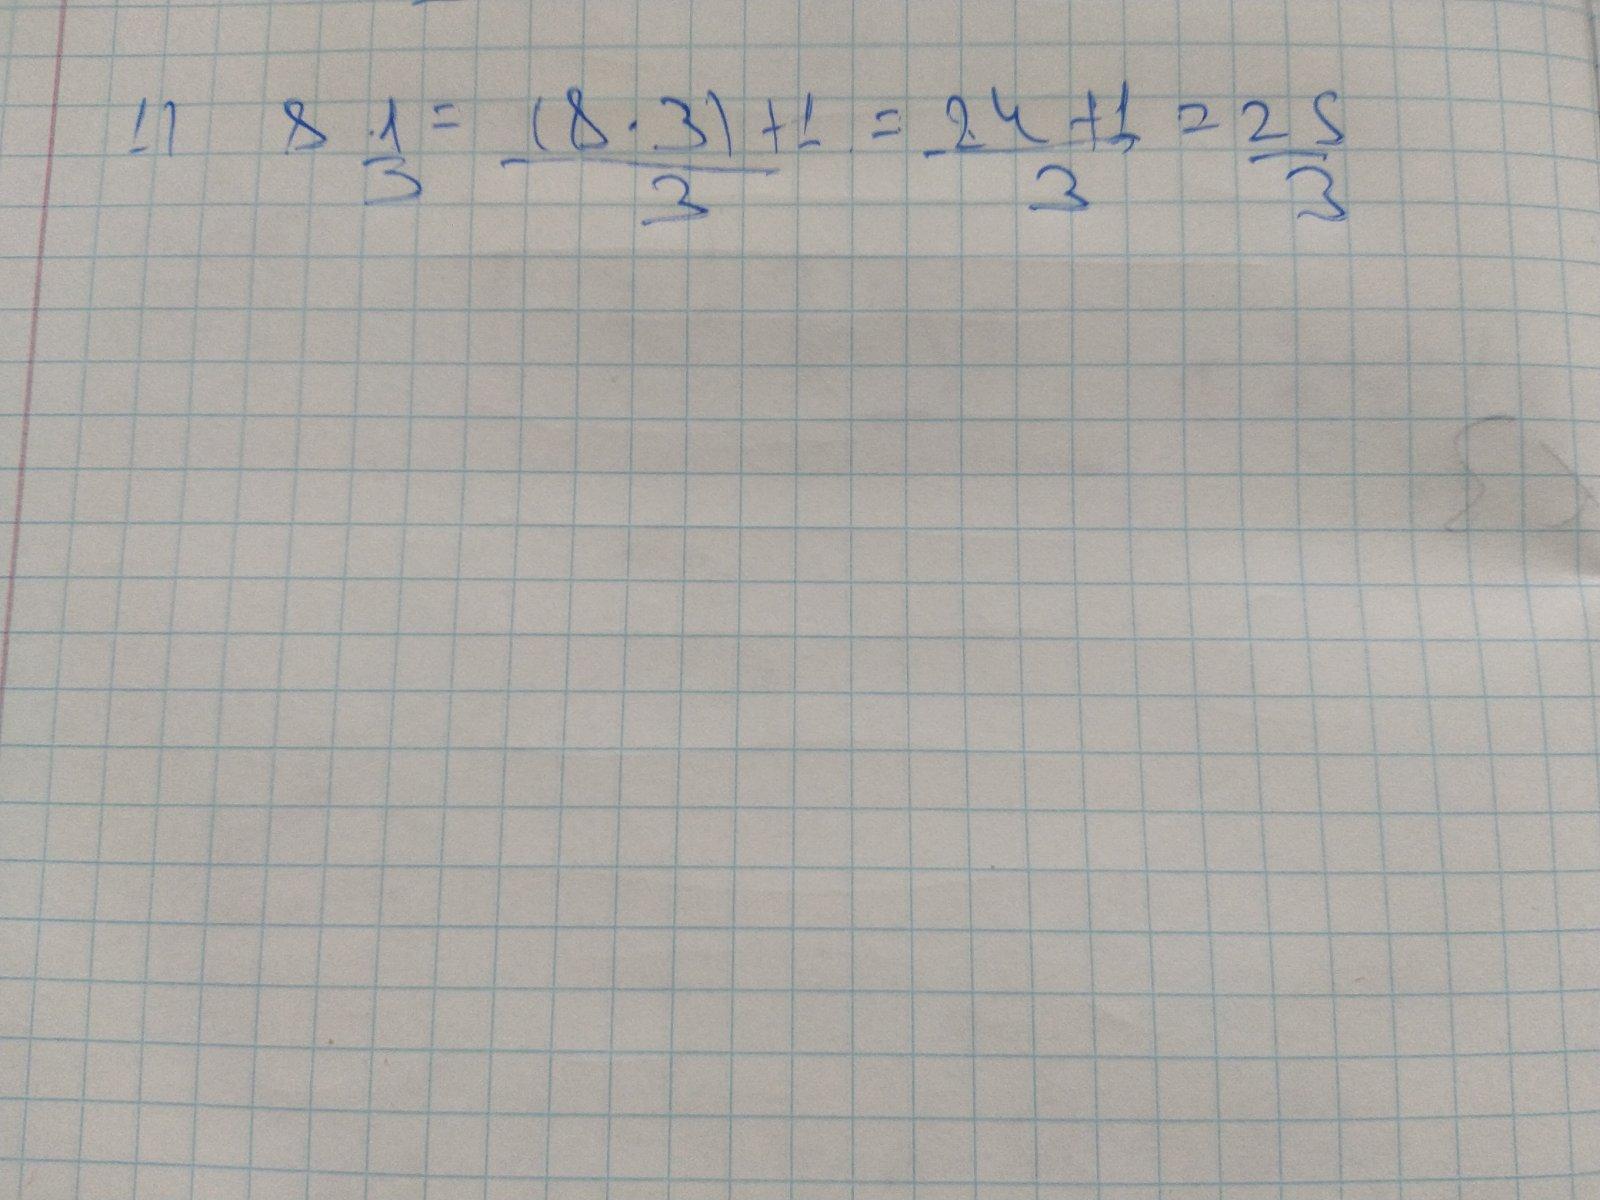 1) 8 1/3 = (8·3)+1/3 = 24+1/3 = 25/3